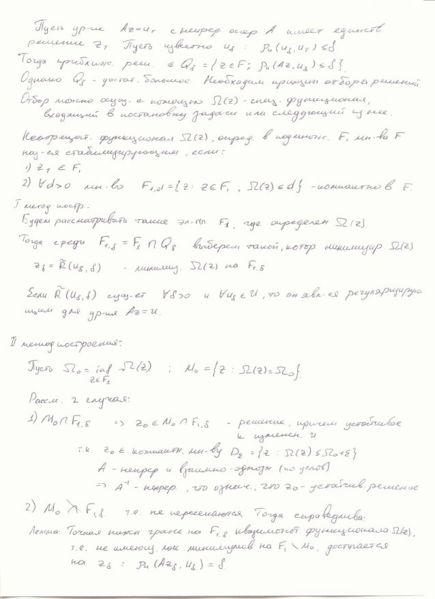 Пусть ур-ие Az=u_T с непрер опер A имеет единств
решение z_T Пусть известно u_δ : ρ_u(u_δ, u_T) ≤ δ
Тогда приближ. реш. ∈ Q_δ = {z∈F; ρ_u(Az, u_δ) ≤ δ}
Однако Q_δ - достат. большое. Необходим принцип отбора решений
Отбор можно осущ. с помощью Ω(z) - спец. функционал,
входящий в постановку задачи или следующий из нее.
Неотрицат. функционал Ω(z), опред. в подмнож. F₁ мн-ва F
наз-ся стабилизирующим, если:
1) z_T ∈ F₁
2) ∀d>0 мн-во F_{1,d} = {z: z∈F₁, Ω(z) ≤ d} - компактно в F.
I метод постр.
Будем рассматривать такие эл-ты F₁, где определен Ω(z)
Тогда среди F_{1,δ} = F₁ ∩ Q_δ выберем такой, котор минимизир Ω(z)
z_δ = R̃(u_δ, δ) - минимиз. Ω(z) на F_{1,δ}
Если R̃(u_δ, δ) сущ-ет ∀δ>0 и ∀u_δ∈U, то он явл-ся регуляризирую
щим для ур-ия Az=u.
II метод построения:
Пусть Ω₀ = inf Ω(z) ; M₀ = {z : Ω(z)=Ω₀}.
z∈F₁
Рассм. 2 случая:
1) M₀ ∩ F_{1,δ} ⇒ z₀ ∈ M₀ ∩ F_{1,δ} - решение, причем устойчивое
к изменен. u
т.к. z₀ ∈ компактн. мн-ву D_δ = {z : Ω(z) ≤ Ω₀+δ}
A - непрер и взаимно-однозн (по услов)
⇒ A⁻¹ - непрер, что означ., что z₀ - устойчив решение
2) M₀ F_{1,δ} т.е. не пересекаются Тогда справедлива:
Лемма: Точная нижн грань на F_{1,δ} функционала Ω(z),
т.е. не имеющ. лок минимумов на F₁ \ M₀, достается
на z_δ : ρ_u(Az_δ, u_δ) = δ